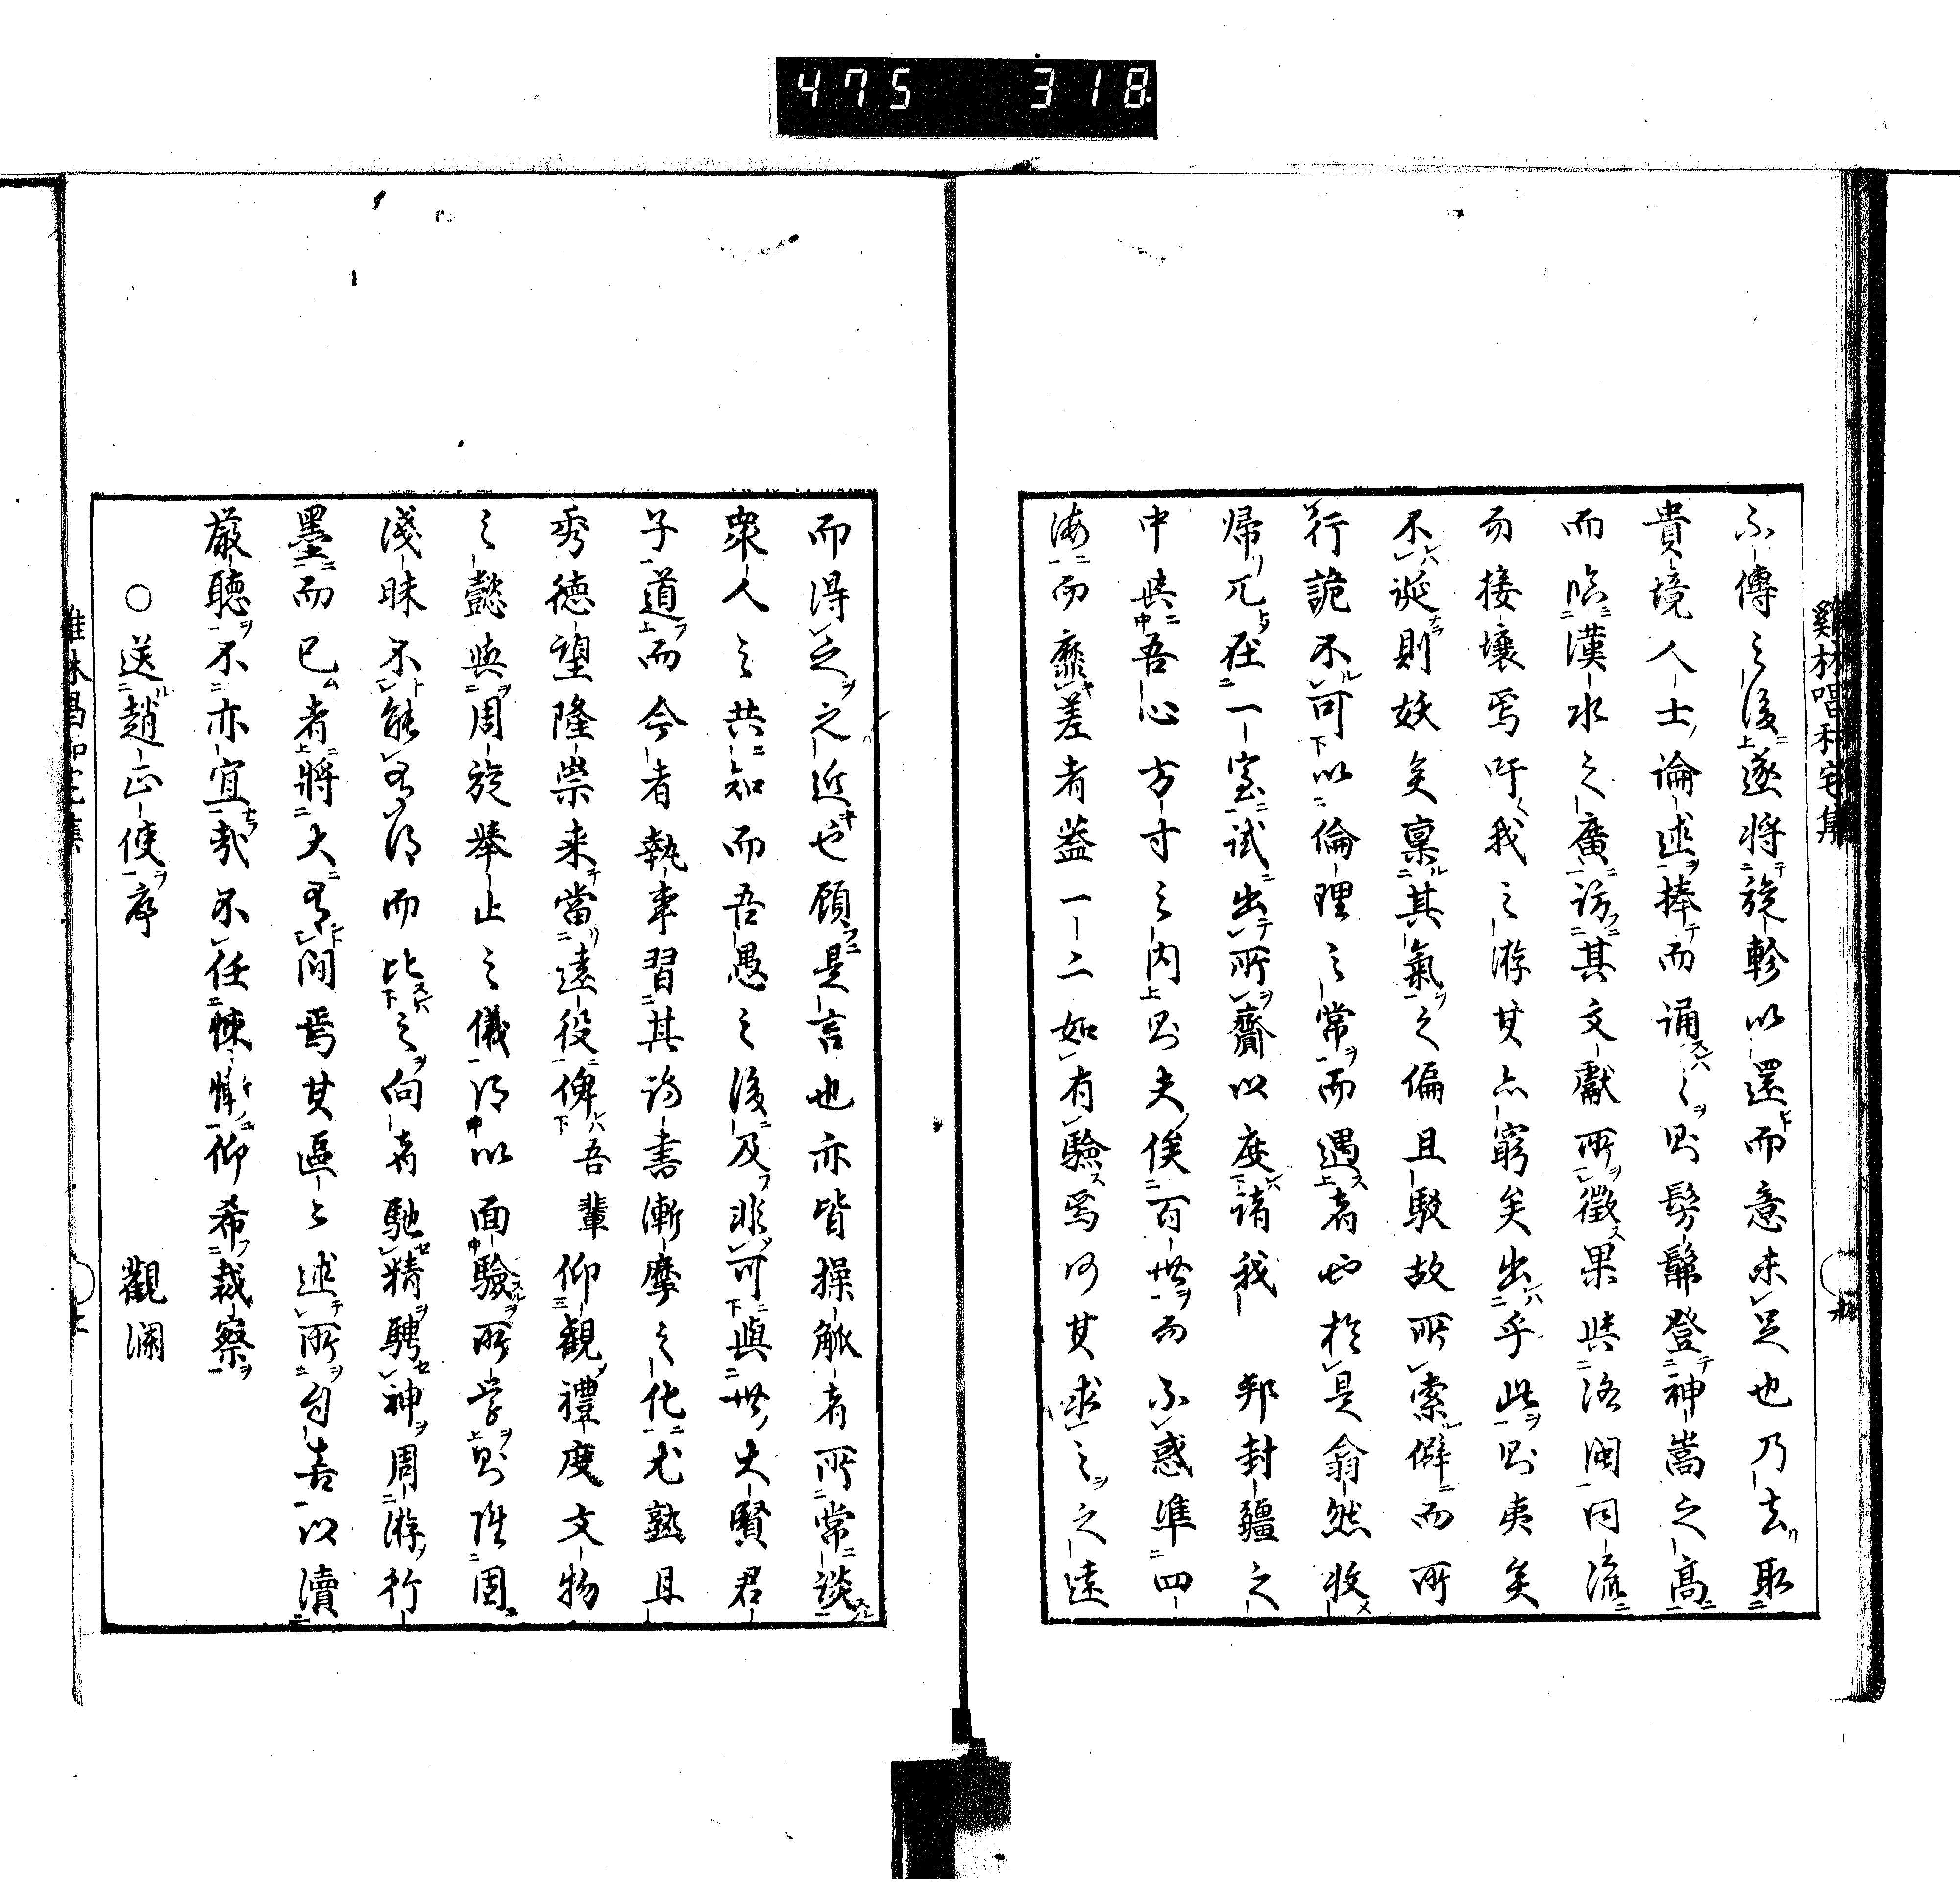 475 318
雞林唱和
不傳之後遂將旋軫以還而意未足也乃去取
貴境人士論述捧而誦之則髣髴登神嵩之高
而臨漢水之廣訪其文獻所徵果與洛閩同流
而接壤焉吁我之游其亦窮矣出乎此則夷矣
不誕則妖矣稟其氣之偏且駁故所索僻而所
行詭不可以倫理之常而遇者也於是翕然收
歸兀在一室試出所齎以度諸我 邦封疆之
中與吾心方寸之內則夫俟百世而不惑準四
海而靡差者蓋一二如有驗焉何其求之之遠
而得之之近也顧是言也亦皆操觚者所常談
衆人之共知而吾愚之後及非可與世大賢君
子道而今者執事習其詩書漸摩之化尤熟且
秀德望隆崇来當遠役俾吾輩仰觀禮度文物
之懿與周旋舉止之儀得中以面驗所学則雖固
淺昧不能有得而比之向者馳精騁神周游行
墨而已者將大有間焉其區々述所自告以瀆
嚴聽不亦宜哉不任悚慚仰希裁察
○送趙正使序 觀瀾